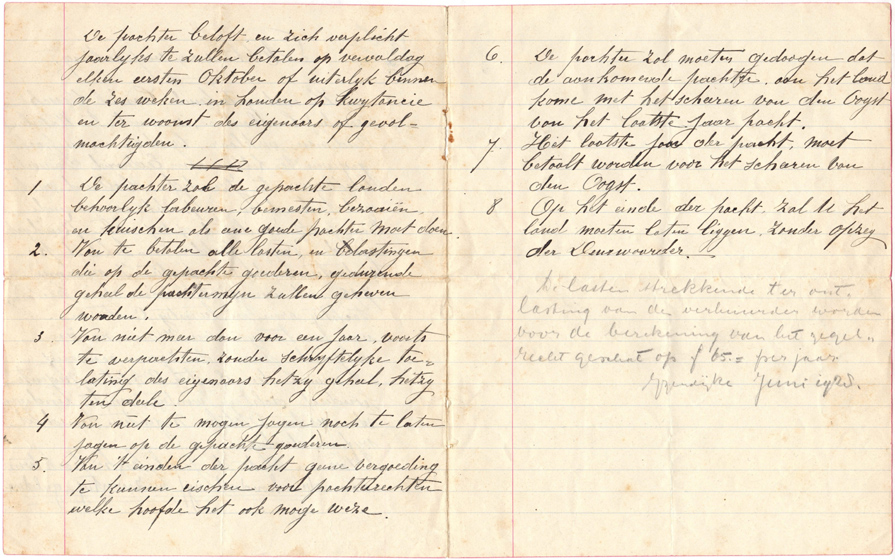 De pachter beloft en zich verplicht
jaarlyks te zullen betalen op vervaldag
elken eersten Oktober of uiterlyk binnen
de zes weken, in handen op kwytancie
en ter woonst des eigenaars of gevol-
machtigden.
1 De pachter zal de gepachte landen
behoorlyk labeuren, bemesten, bezaaiën
en kuischen als eene goede pachter moet doen.
2. Van te betalen alle lasten, en belastingen
die op de gepachte goederen, gedurende
geheel de pachtermyn zullen geheven
worden.
3 Van niet meer dan voor een jaar, voorts
te verpachten, zonder schryftelyke toe-
lating des eigenaars hetzy geheel, hetzy
ten deele.
4 Van niet te mogen jagen noch te laten
jagen op de gepacht goederen.
5. Van 't einden der pacht geene vergoeding
te kunnen eischen voor pachtersrechten
welke hoofde het ook moge weze.
6. De pachter zal moeten gedoogen dat
de aankomende pachter aan het land
kome met het scharen van den Oogst
van het laatste jaar pacht.
7. Het laatste jaar der pacht, moet
betaalt worden voor het scharen van
den Oogst.
8 Op het einde der pacht, zal U het
land moeten laten liggen, zonder opzeg
der
De lasten strekkende ter ont-
lasting van de verhuurder worden
voor de berekening van het zegel-
recht geschat op f 65.= per jaar
Yzendijke Juni